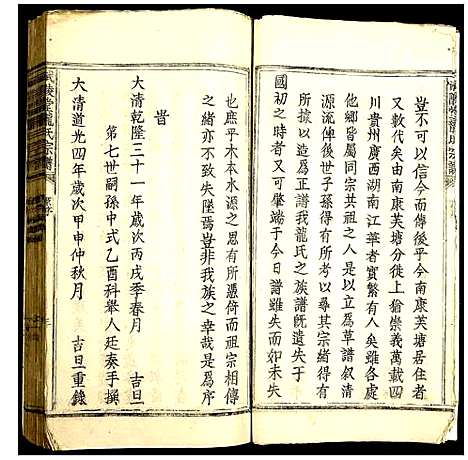 豈不可以信今而傳後乎今南康芙塘居住者
又數代矣由南康芙塘分徙上猶崇義萬載四
川貴州廣西湖南江華者實繁有人矣雖各處
他鄉皆屬同宗共祖之人一以立為草譜叙清
源流俾後世子孫得有所以尋其宗緒得有
所據以造為正譜我龍氏之族譜旣遺失于
國初之時者又可肇端于今日譜雖失而如未失
也庶乎木本水源之思有所憑倚而祖宗相傳
之緒亦不致失墜焉豈非我族之幸哉是為序
旹
大清乾隆三十一年歲次丙戌季春月 吉旦
第七世嗣孫中式乙酉科舉人廷奏手撰
大清道光四年歲次甲申仲秋月 吉旦重錄
武陵堂龍氏宗譜